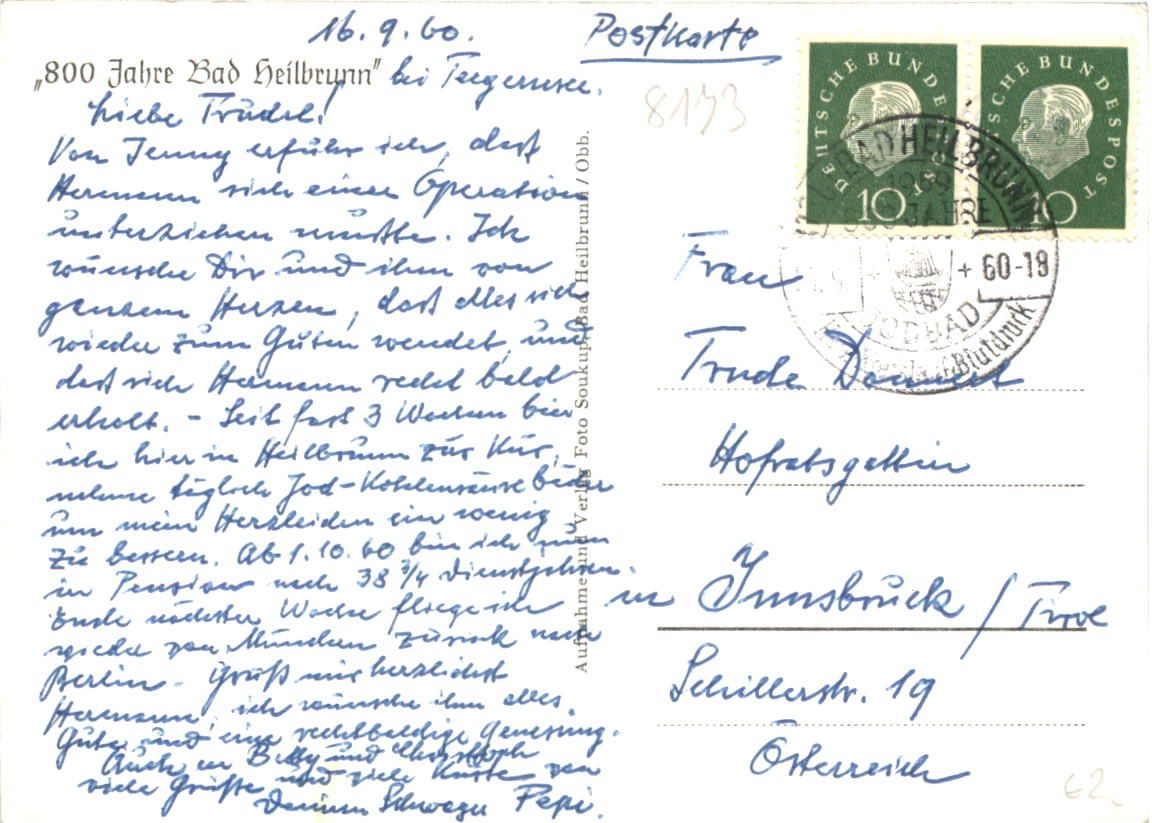 16.9.60.
Postkarte
„800 Jahre Bad Heilbrunn" bei Tegernsee.
Liebe Trudel!
Von Jenny erfuhr ich, daß
Hermann sich einer Operation
unterziehen mußte. Ich
wünsche Dir und ihm von
ganzem Herzen, daß alles sich
wieder zum Guten wendet und
daß sich Hermann recht bald
erholt. – Seit fast 3 Wochen bin
ich hier in Heilbrunn zur Kur,
nehme täglich Jod-Kohlensäurebäder
um mein Herzleiden ein wenig
zu bessern. Ab 1.10.60 bin ich nun
in Pension nach 38 3/4 Dienstjahren.
Ende nächster Woche fliege ich
wieder von München zurück nach
Berlin. Grüß mir herzlichst
Hermann, ich wünsche ihm alles
Gute und eine recht baldige Genesung.
Auch an Betty und Christoph
viele Grüße und viele Küsse von
Deinem Schwager Pepi.
Aufnahme und Verlag Foto Soukup, Bad Heilbrunn / Obb.
8173
DEUTSCHE BUNDESPOST
10
DEUTSCHE BUNDESPOST
10
BAD HEILBRUNN
1959
800 JAHRE
60-19
JODBAD
Blutdruck
Frau
Trude
Hofratsgattin
in Innsbruck / Tirol
Schillerstr. 19
Österreich
62